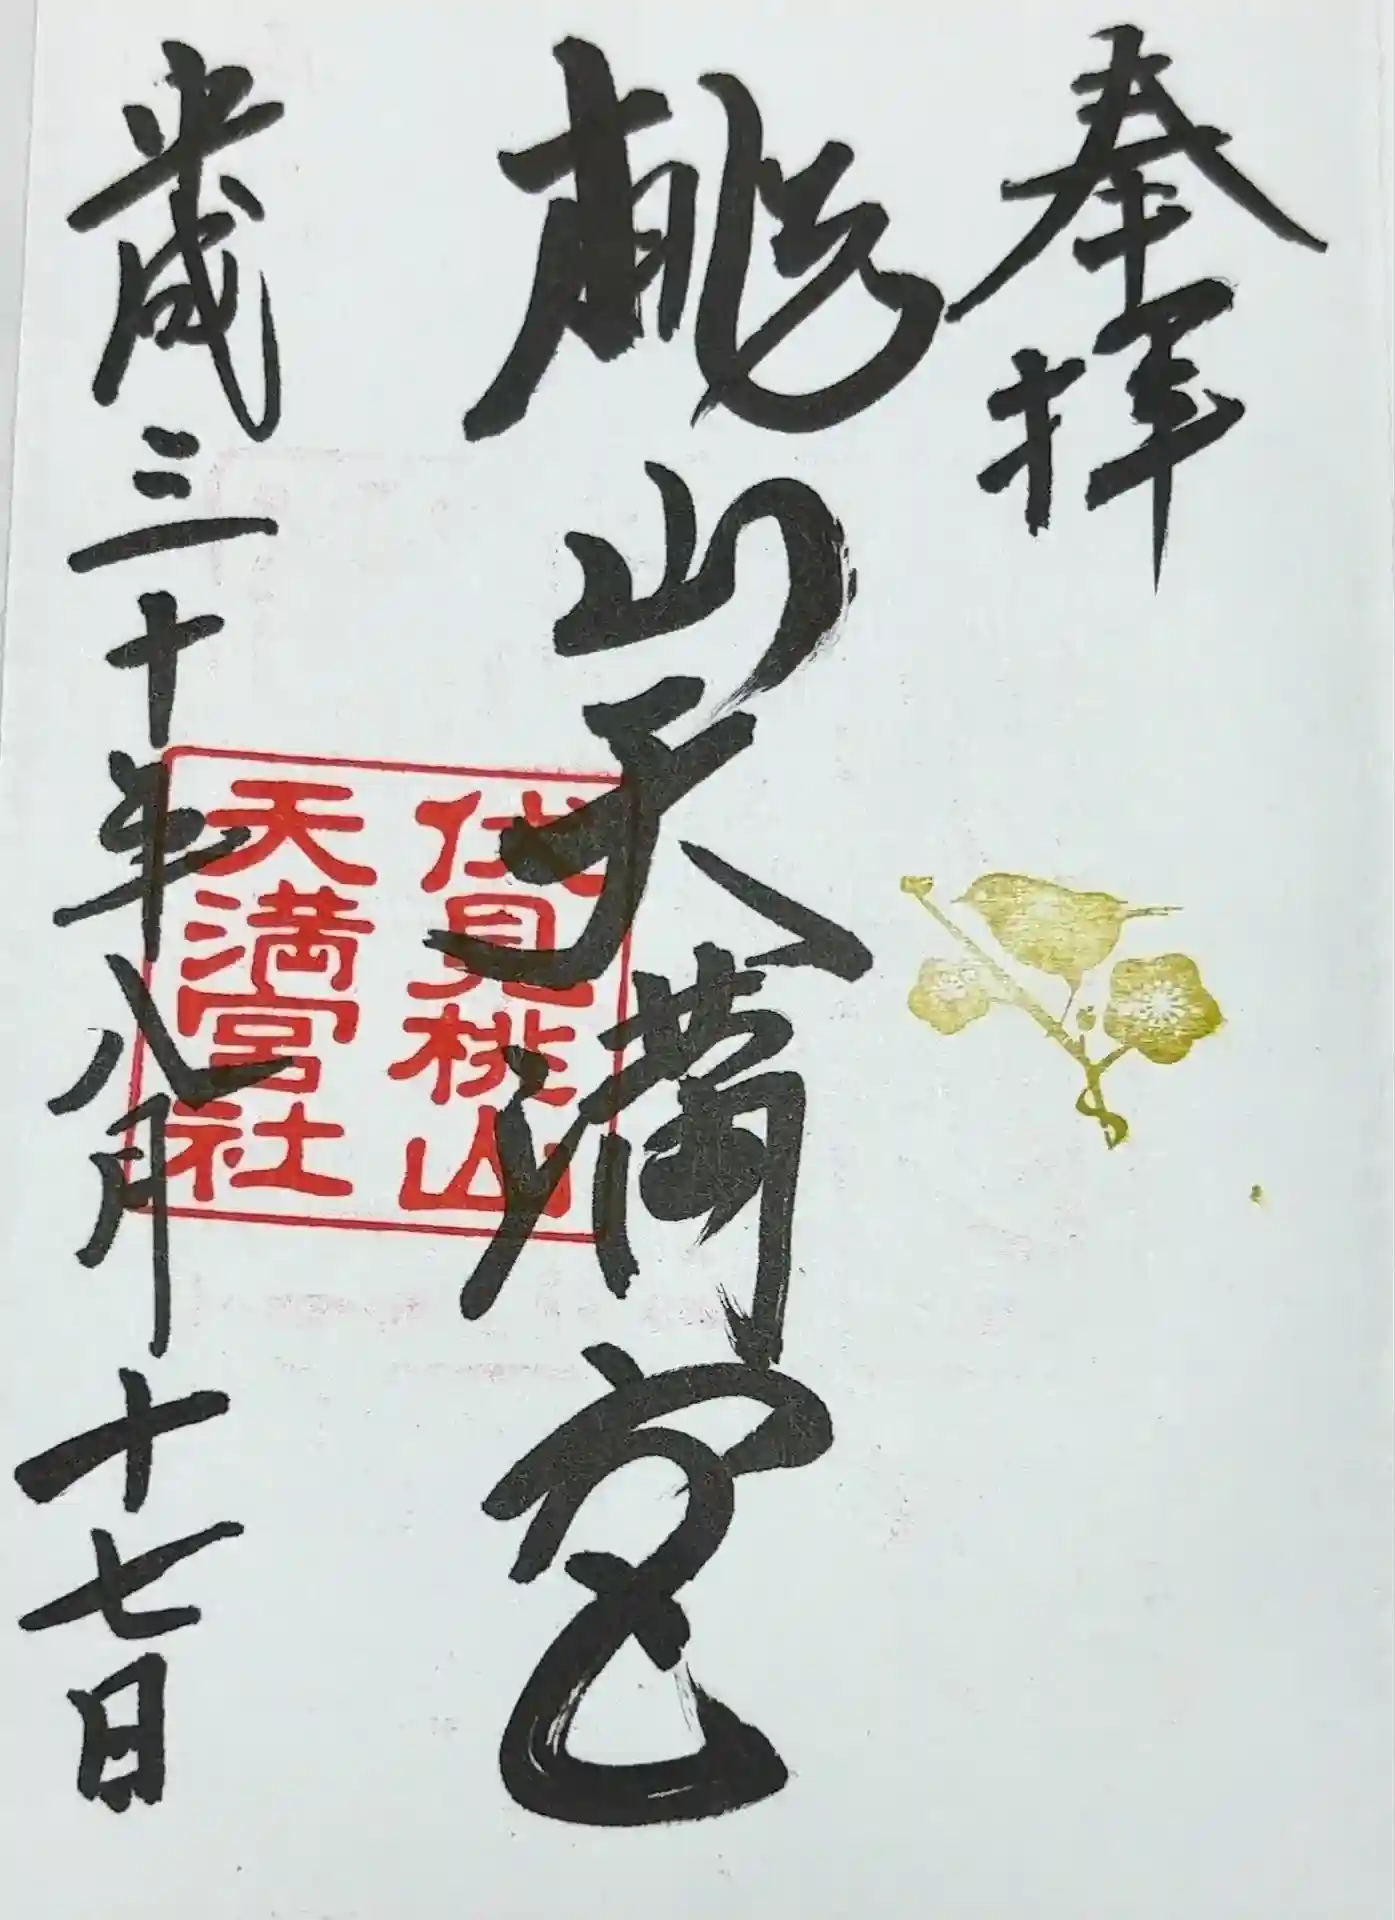 奉拝
桃山天満宮
伏見桃山
天満宮社
平成三十年八月十七日